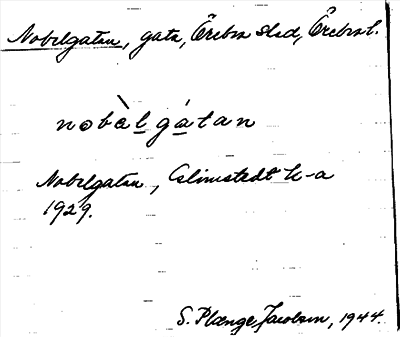 Nobelgatan, gata, Örebro stad, Örebro l.
nobàlgátan
Nobelgatan, Calimstedt K-a
1929.
S. Plænge Jacobson, 1944.